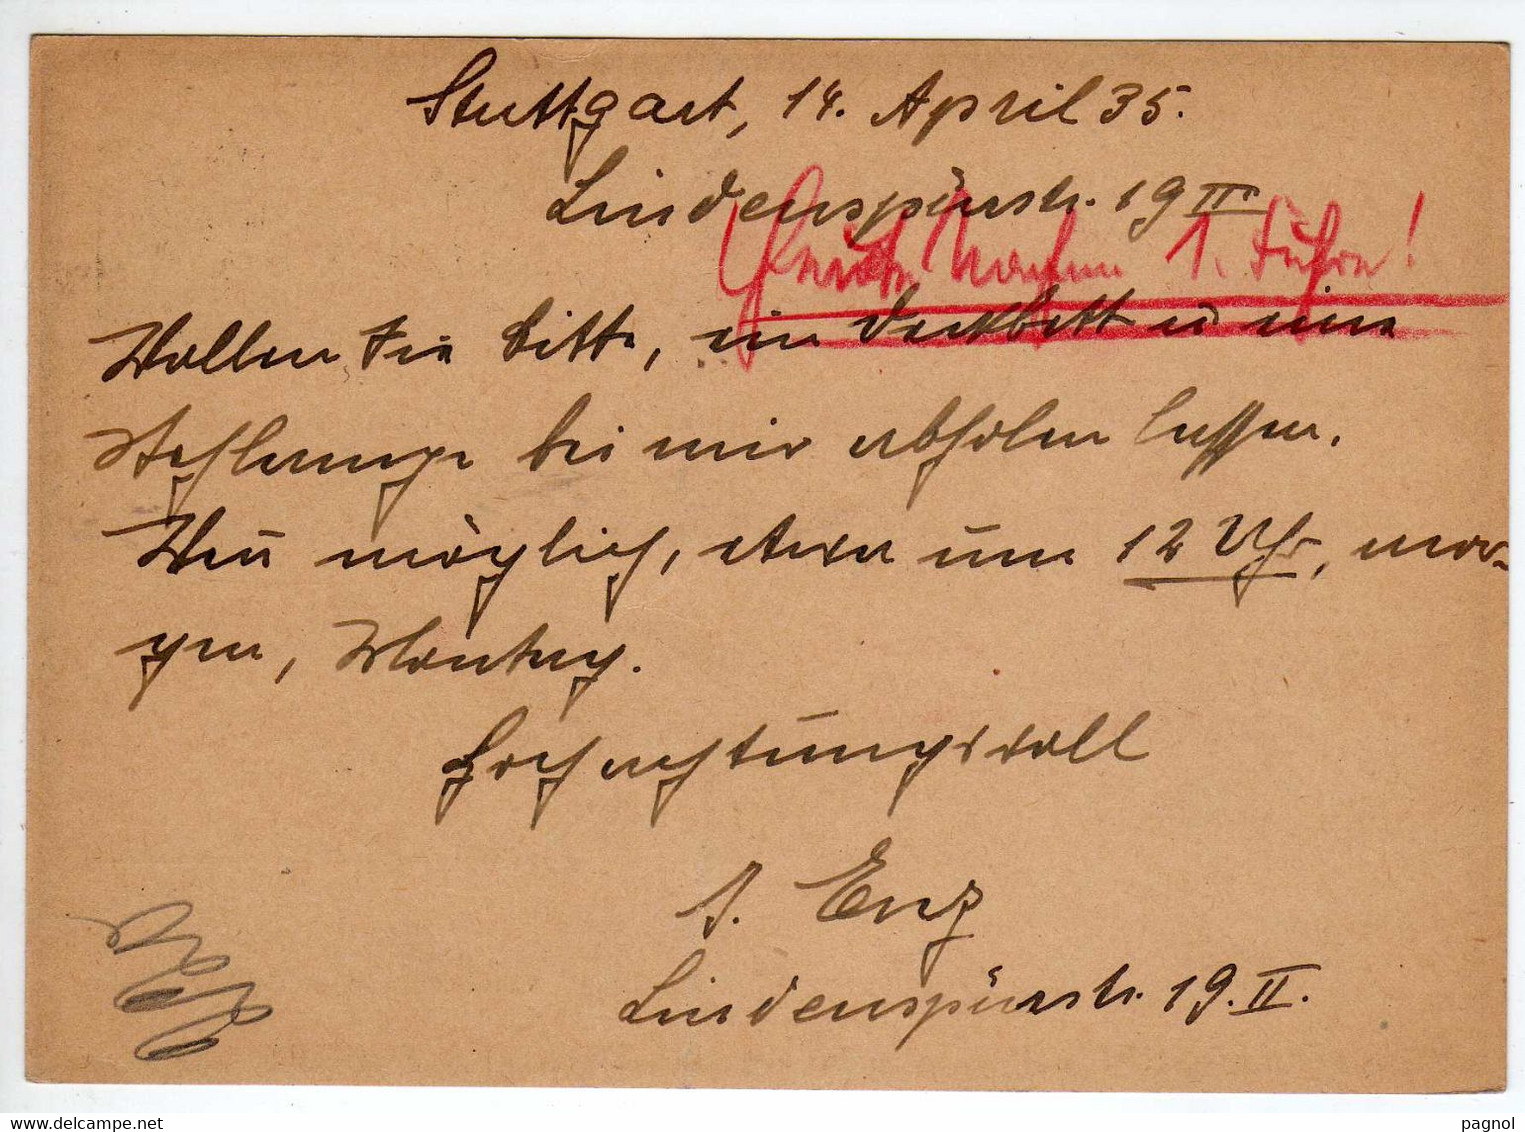 Stuttgart, 14. April 35.
Lindenspürstr. 19 II.
1. Fuhre!
Wollen Sie bitte, ein Deckbett u eine
bei mir abholen lassen.
Wen̄ möglich, etwa um 12 Uhr, mor-
gen, Montag.
Hochachtungsvoll
J. Enz
Lindenspürstr. 19. II.
www.delcampe.net
pagnol